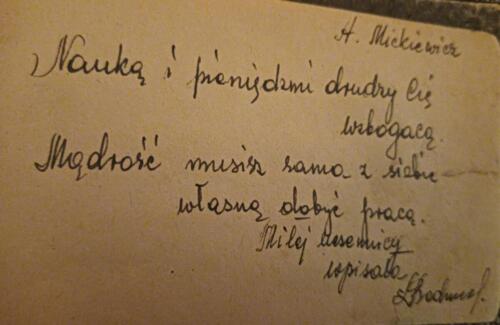 A. Mickiewicz
Nauką i pieniędzmi drudzy Cię
wzbogacą.
Mądrość musisz sama z siebie
własną dobyć pracą.
Miłej uczennicy
wpisała